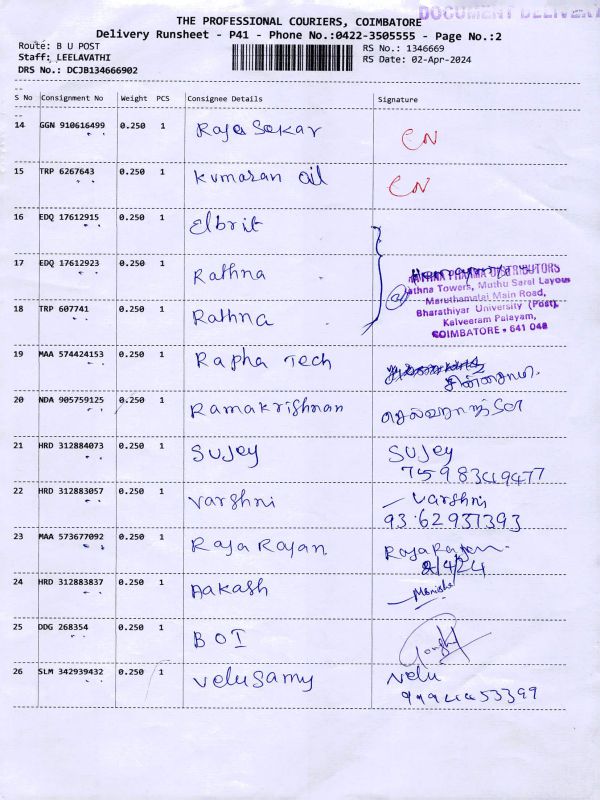 DOCUMENT DELIVERY
THE PROFESSIONAL COURIERS, COIMBATORE
Delivery Runsheet - P41 - Phone No.:0422-3505555 - Page No.:2
Route: B U POST
RS No.: 1346669
Staff: LEELAVATHI
RS Date: 02-Apr-2024
DRS No.: DCJB134666902
S No Consignment No Weight PCS Consignee Details Signature
14 GGN 910616499 0.250 1 Raja Sekar CN
15 TRP 6267643 0.250 1 Kumaran Oil CN
16 EDQ 17612915 0.250 1 Elbrit
17 EDQ 17612923 0.250 1 Rathna
PHARMA DISTRIBUTORS
Rathna Towers, Muthu Sarel Layout
Maruthamalai Main Road,
Bharathiyar University (Post),
Kalveeram Palayam,
COIMBATORE - 641 046
18 TRP 607741 0.250 1 Rathna
19 MAA 574424153 0.250 1 Rapha Tech
20 NDA 905759125 0.250 1 Ramakrishnan
21 HRD 312884073 0.250 1 Sujey Sujey
22 HRD 312883057 0.250 1 Varshni Varshni
93 62931393
23 MAA 573677092 0.250 1 Raja Rajan Raja Rajan
2/4/24
24 HRD 312883837 0.250 1 Aakash Manisha
25 DDG 268354 0.250 1 BOI
26 SLM 342939432 0.250 1 Velusamy Velu